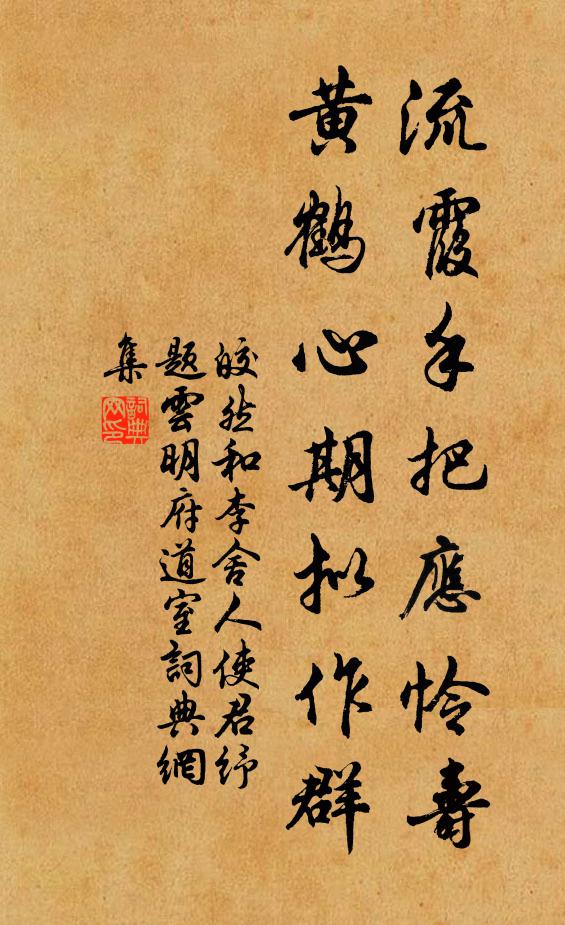 流霞手把應怜壽
黃鶴心期拟作群
皎然和李舍人使君纾
題雲明府道室詞典網
集
詞典網印